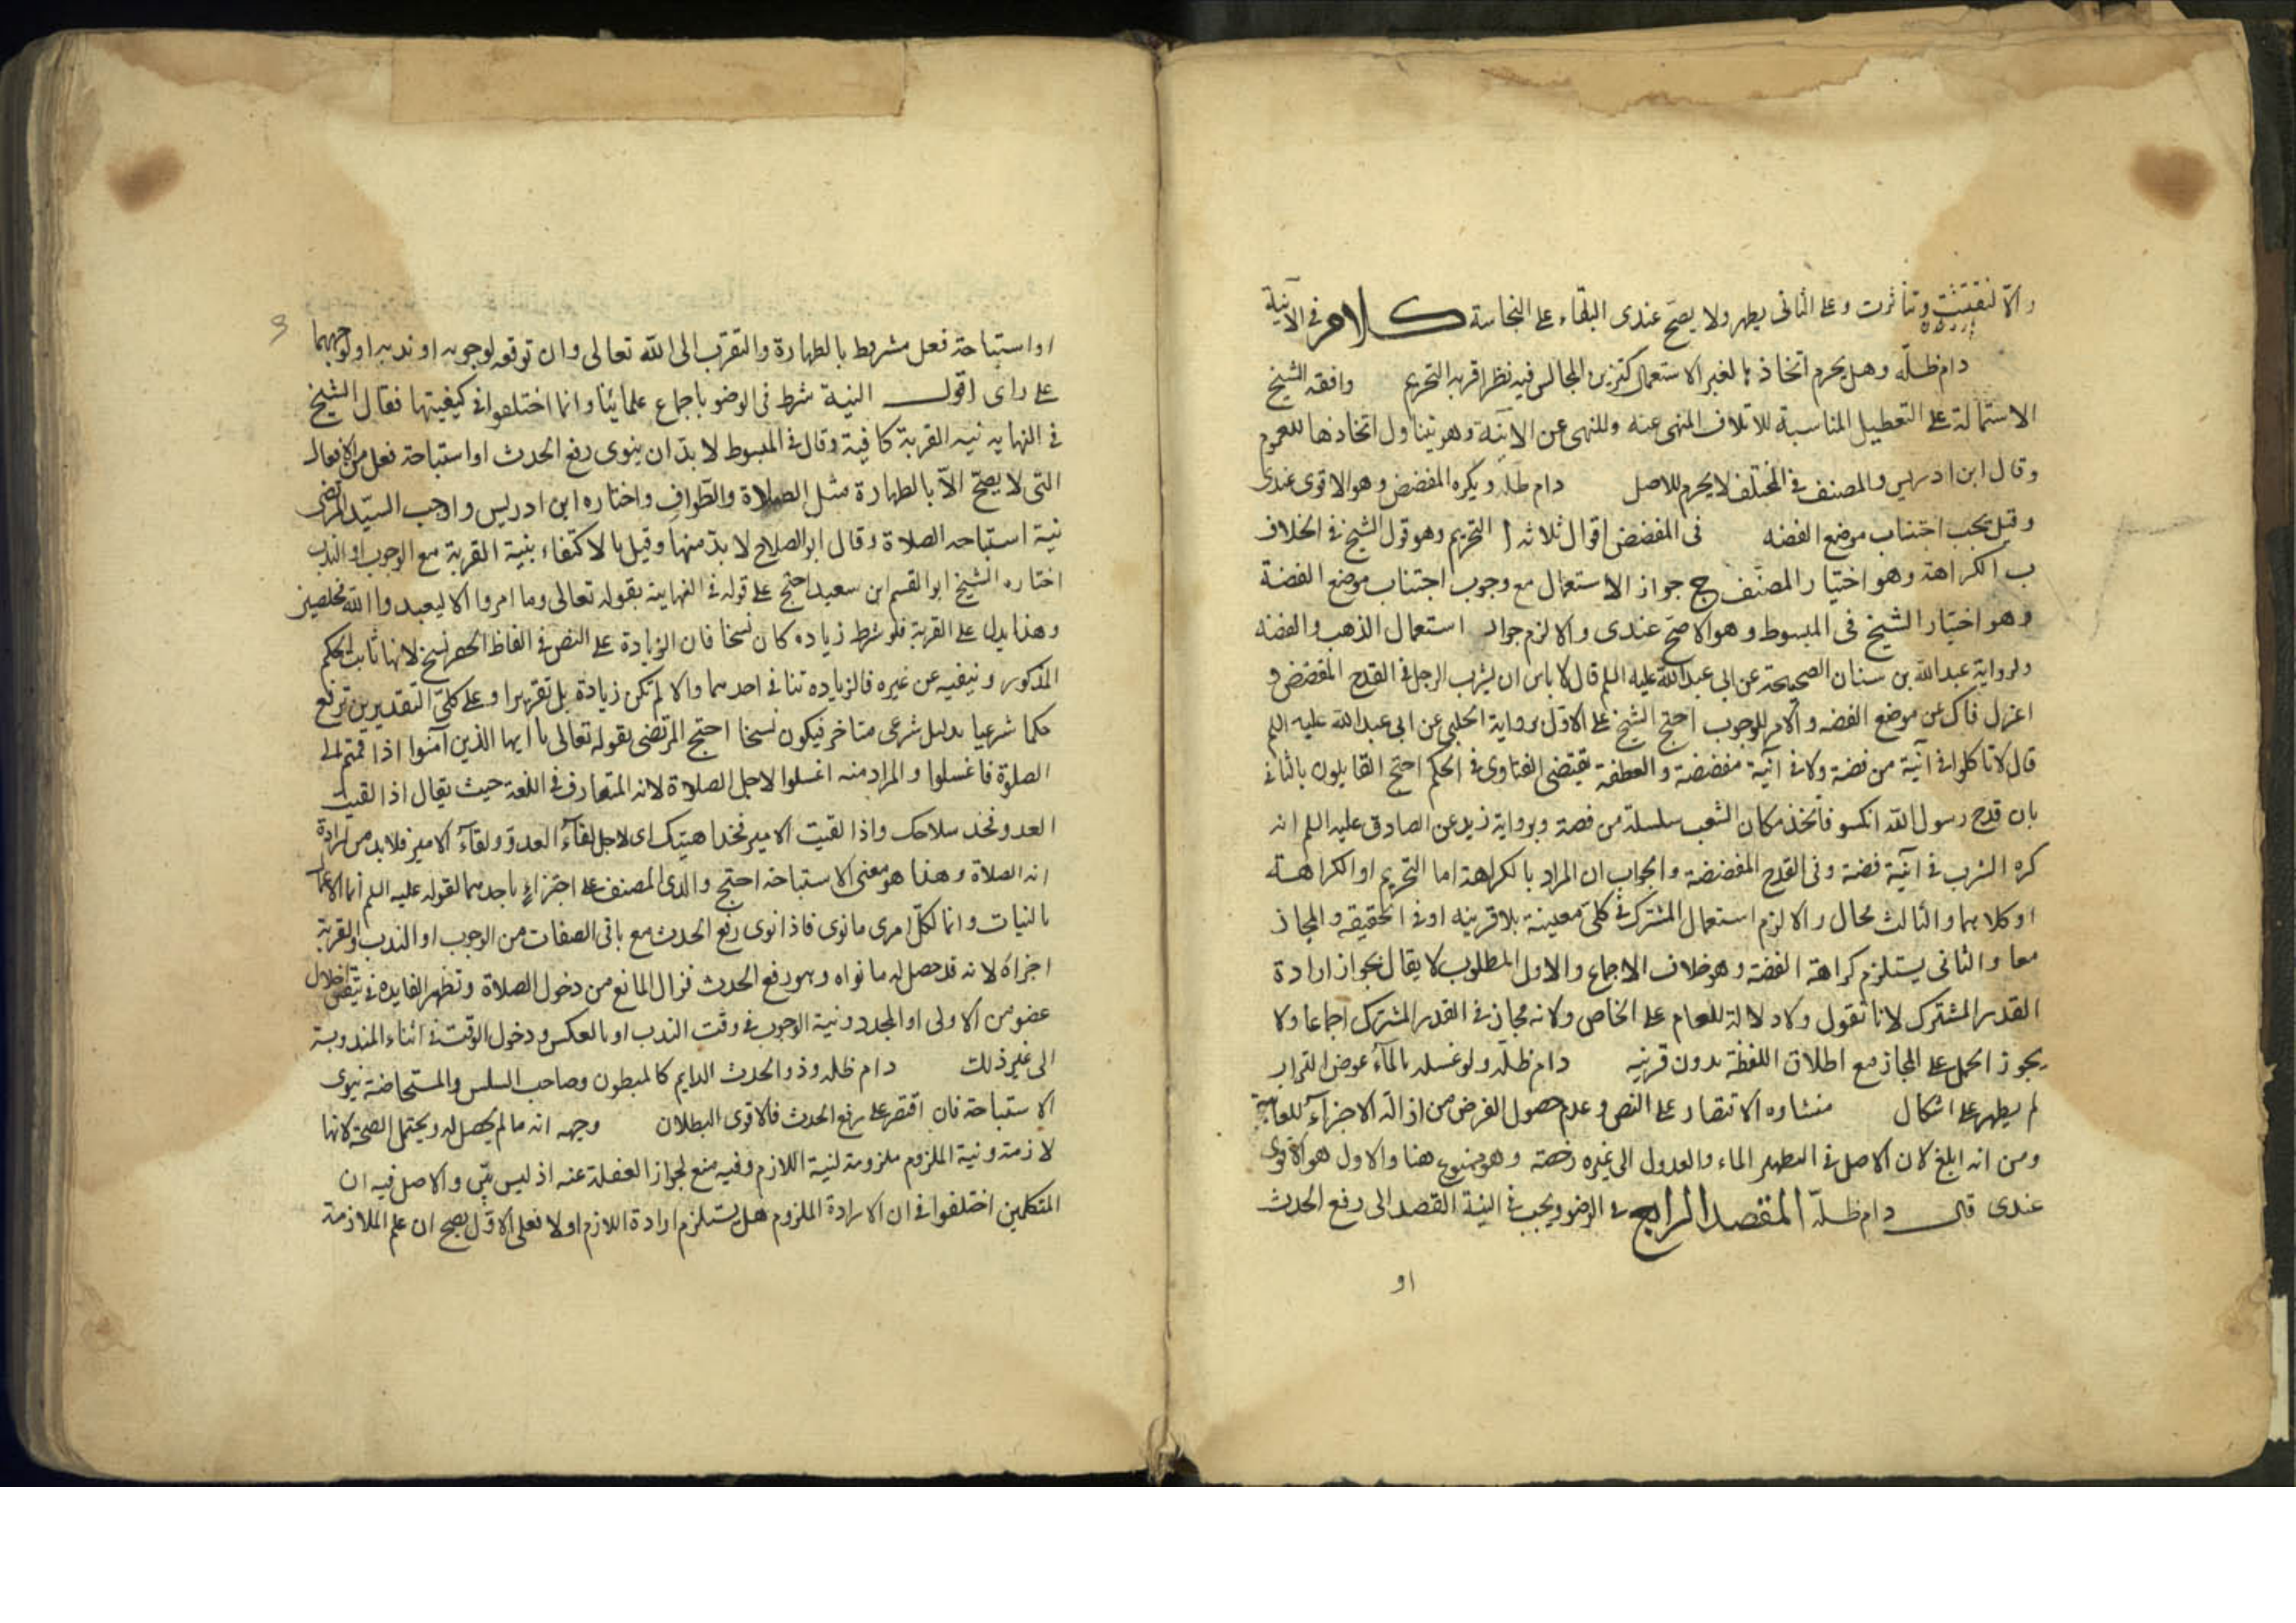 والا لتفتتت وتناثرت وعلى الثانى يطهر ولا يصح عندى البقاء على النجاسة كلام فى الآنية
دام ظله وهل يحرم اتخاذها لغير الاستعمال كتزيين المجالس فيه نظر اقربه التحريم وافقه الشيخ
الاشتماله على التعطيل المناسبة للاتلاف المنهى عنه وللنهى عن الآنية وهو يتناول اتخاذها للعموم
وقال ابن ادريس والمصنف فى المختلف لا يحرم للاصل دام ظله ويكره المفضض وهو الاقوى عندى
وقيل يجب اجتناب موضع الفضه فى المفضض اقوال ثلاثه ا التحريم وهو قول الشيخ فى الخلاف
ب الكراهة وهو اختيار المصنف ج جواز الاستعمال مع وجوب اجتناب موضع الفضة
وهو اختيار الشيخ فى المبسوط وهو الاصح عندى والا لزم جواز استعمال الذهب والفضه
ولرواية عبد الله بن سنان الصحيحة عن ابى عبد الله عليه السلم قال لا باس ان يشرب الرجل فى القدح المفضض و
اعزل فاك عن موضع الفضه والامر للوجوب احتج الشيخ على الاول برواية الحلبى عن ابى عبد الله عليه السلم
قال لا تاكلوا فى آنية من فضة ولا فى آنية مفضضة والعطف يقتضى التساوى فى الحكم احتج القايلون بالثانى
بان قدح رسول الله انكسر فاتخذ مكان الشعب سلسلة من فضة وبرواية بريد عن الصادق عليه السلم انه
كره الشرب فى آنية فضة وفى القدح المفضضة والجواب ان المراد بالكراهة اما التحريم او الكراهة
او كلاهما والثالث محال والا لزم استعمال المشترك فى كلى معينية بلا قرينه او فى الحقيقه والمجاز
معا والثانى يستلزم كراهة الفضة وهو خلاف الاجماع والاول المطلوب لا يقال بجواز ارادة
القدر المشترك لانا نقول ولا دلالة للعام على الخاص ولانه مجاز فى القدر المشترك اجماعا ولا
يجوز الحمل على المجاز مع اطلاق اللفظة بدون قرينه دام ظله ولو غسله بالماء عوض التراب
لم يطهر على اشكال منشاوه الاقتصار على النص وعدم حصول الغرض من ازالة الاجزاء اللعابية
ومن انه ابلغ لان الاصل فى التطهير الماء والعدول الى غيره رخصة وهو ممنوع هنا والاول هو الاقوى
عندى قال دام ظله المقصد الرابع فى الوضو ويجب فى النية القصد الى رفع الحدث
او
او استباحة فعل مشروط بالطهارة والتقرب الى الله تعالى وان توقعه لوجوبه او ندبه او لوجههما
على راى اقول النية شرط فى الوضو باجماع علمائنا وانما اختلفوا فى كيفيتها فقال الشيخ
فى النهايه نيه القربة كافية وقال فى المبسوط لا بد ان ينوى رفع الحدث او استباحة فعل من الافعال
التى لا يصح الا بالطهارة مثل الصلاة والطواف واختاره ابن ادريس واوجب السيد المرتضى
نية استباحه الصلاة وقال ابو الصلاح لا بد منها وقيل بالاكتفاء بنية القربة مع الوجوب او الندب
اختاره الشيخ ابو القسم ابن سعيد احتج على قوله فى النهاية بقوله تعالى وما امروا الا ليعبدوا الله مخلصين
وهذا يدل على القربة فلو شرط زياده كان نسخا فان الزيادة على النص فى الفاظ الحصر نسخ لانها ثابت لحكم
المذكور وينفيه عن غيره فالزياده تنافى احدهما والا لم تكن زيادة بل تقريرا وعلى كلى التقديرين ترفع
حكما شرعيا بدليل شرعى متاخر فيكون نسخا احتج المرتضى بقوله تعالى يا ايها الذين آمنوا اذا قمتم الى
الصلوة فاغسلوا والمراد منه اغسلوا لاجل الصلاة لانه المتعارف فى اللغة حيث يقال اذا لقيت
العدو فخذ سلاحك واذا لقيت الامير فخذ اهبتك اى لاجل لقاء العدو ولقاء الامير فلا بد من ارادة
انه الصلاة وهذا هو معنى الاستباحة احتج والدى المصنف على اجتزاء باحدهما لقوله عليه السلم انما الاعمال
بالنيات وانما لكل امرى ما نوى فاذا نوى رفع الحدث مع باقى الصفات من الوجوب او الندب والقربة
اجزاه لانه قد حصل له ما نواه وهو رفع الحدث فزال المانع من دخول الصلاة وتظهر الفايده فى تيقن اخلال
عضو من الاولى او المجدد ونية الوجوب فى وقت الندب او بالعكس ودخول الوقت فى اثناء المندوبة
الى غير ذلك دام ظله وذو الحدث الدايم كالمبطون وصاحب السلس والمستحاضة ينوى
الاستباحة فان اقتصر على رفع الحدث فالاقوى البطلان وجهه انه ما لم يحصل له ويحتمل الصحة لانها
لازمة ونية الملزوم ملزومة لنية اللازم وفيه منع لجواز الغفلة عنه اذ ليس ببين والاصل فيه ان
المتكلمين اختلفوا فى ان الارادة الملزوم هل يستلزم ارادة اللازم او لا فعلى الاول يصح ان علم الملازمة